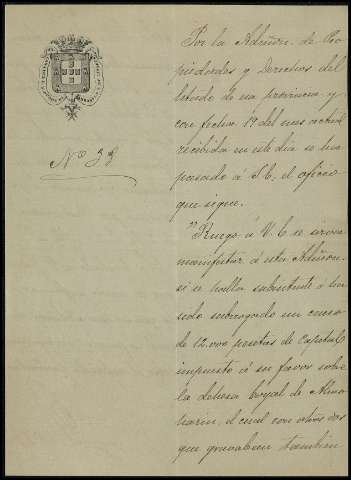 Nº 33
Por la Admon. de Pro
piedades y Derechos del
Estado de esa provincia y
con fecha 19 del mes actual
recibida en este dia se ha
pasado á S.E. el oficio
que sigue.
"Ruego á V.E. se sirva
manifestar á esta Admon.
si se halla subsistente ó ha
sido subrogado un censo
de 12.000 pesetas de Capital
impuesto á su favor sobre
la dehesa boyal de Almo
harin, el cual con otros dos
que gravaban tambien